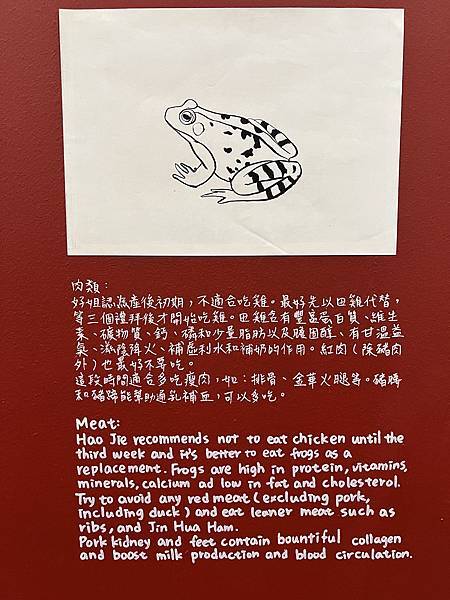 肉類：
好姐認為產後初期，不適合吃雞。最好先以田雞代替，
等三個禮拜後才開始吃雞。田雞含有豐富蛋白質、維生
素、礦物質、鈣、磷和少量脂肪以及膽固醇、有甘溫益
氣、滋陰降火、補虛利水和補奶的作用。紅肉（除豬肉
外）也最好不要吃。
這段時間適合多吃瘦肉，如：排骨、金華火腿等。豬腰
和豬蹄能幫助通乳補血，可以多吃。
Meat:
Hao Jie recommends not to eat chicken until the
third week and it's better to eat frogs as a
replacement. Frogs are high in protein, vitamins,
minerals, calcium ad low in fat and cholesterol.
Try to avoid any red meat (excluding pork,
including duck) and eat leaner meat such as
ribs, and Jin Hua Ham.
Pork kidney and feet contain bountiful collagen
and boost milk production and blood circulation.